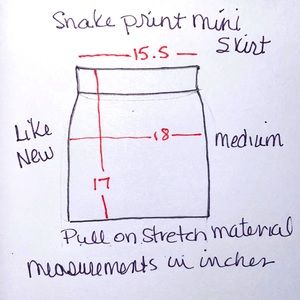 Snake print mini
Skirt
15.5
Like
New
18
medium
17
Pull on Stretch material
measurements in inches